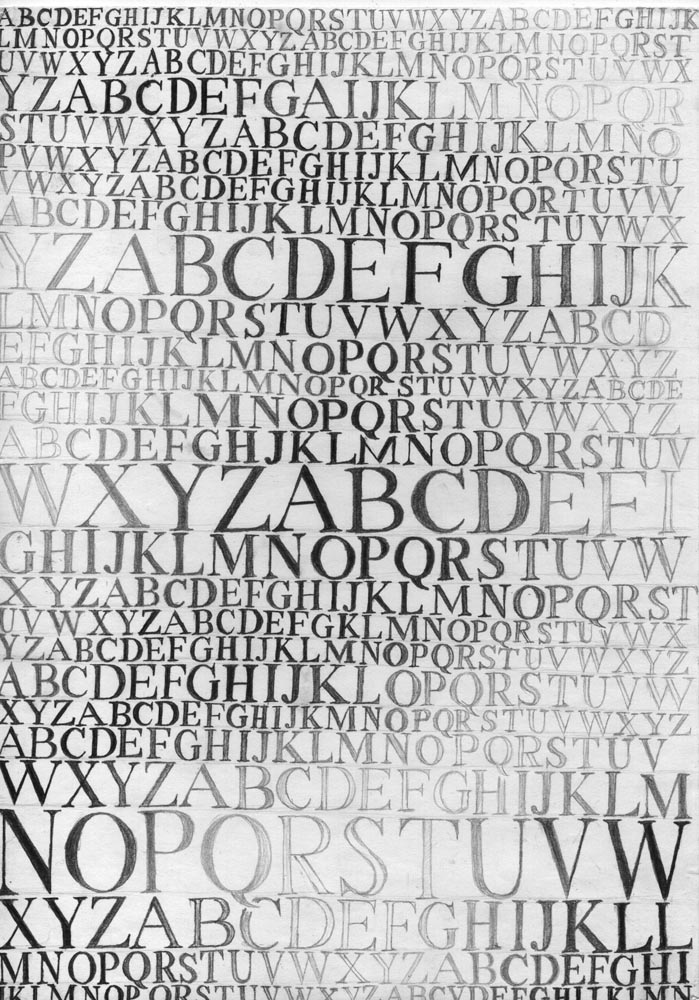 ABCDEFGHIJKLMNOPQRSTUVWXYZABCDEFGHIJK
LMNOPQRSTUVWXYZABCDEFGHIJKLMNOPQRST
UVWXYZABCDEFGHIJKLMNOPQRSTUVWX
YZABCDEFGAIJKLMNOPQR
STUVWXYZABCDEFGHIJKLMNO
PVWXYZABCDEFGHIJKLMNOPQRSTU
VWXYZABCDEFGHIJKLMNOPQRTUVWX
ABCDEFGHIJKLMNOPQRS TUVWX
YZABCDEFGHIJK
LMNOPQRSTUVWXYZABCD
EFGHIJKLMNOPQRSTUVWXYZ
ABCDEFGHIJKLMNOPQRSTUVWXYZABCDE
FGHIJKLMNOPQRSTUVWXYZ
ABCDEFGHJKLMNOPQRSTUV
WXYZABCDEFI
GHIJKLMNOPQRSTUVW
XYZABCDEFGHIJKLMNOPQRST
UVWXYZABCDEFGKLMNOPQRSTUVWX
YZABCDEFGHIJKLMNOPQRSTUVWXYZ
ABCDEFGHIJKLOPQRSTUVW
XYZABCDEFGHIJKMNOPQRSTUVWXYZ
ABCDEFGHIJKLMNOPQRSTUV
WXYZABCDEFGHIJKLM
NOPQRSTUVW
XYZABCDEFGHIJKLL
MNOPQRSTUVWXYZABCDEFGHI
JKLMNOPQRSTUVWXYZABCDEFGHIJKLMN